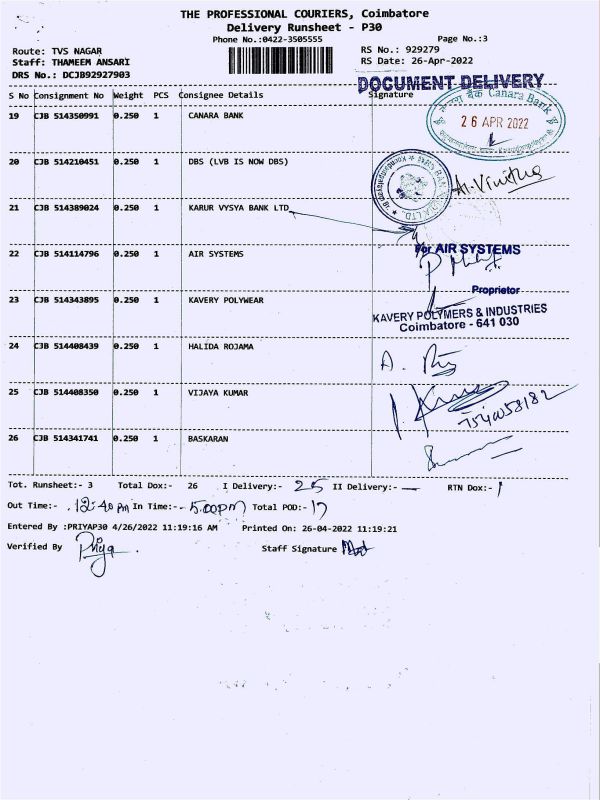 THE PROFESSIONAL COURIERS, Coimbatore
Delivery Runsheet - P30
Phone No.:0422-3505555 Page No.:3
Route: TVS NAGAR RS No.: 929279
Staff: THAMEEM ANSARI RS Date: 26-Apr-2022
DRS No.: DCJB92927903
DOCUMENT DELIVERY
S No Consignment No Weight PCS Consignee Details Signature
केनरा बैंक Canara Bank
19 CJB 514350991 0.250 1 CANARA BANK
26 APR 2022
20 CJB 514210451 0.250 1 DBS (LVB IS NOW DBS)
A.Vinitha
21 CJB 514389024 0.250 1 KARUR VYSYA BANK LTD
For AIR SYSTEMS
22 CJB 514114796 0.250 1 AIR SYSTEMS
Proprietor
23 CJB 514343895 0.250 1 KAVERY POLYWEAR
KAVERY POLYMERS & INDUSTRIES
Coimbatore - 641 030
24 CJB 514408439 0.250 1 HALIDA ROJAMA
25 CJB 514408350 0.250 1 VIJAYA KUMAR
26 CJB 514341741 0.250 1 BASKARAN
Tot. Runsheet:- 3 Total Dox:- 26 I Delivery:- 25 II Delivery:- — RTN Dox:- 1
Out Time:- 12:40 Pm In Time:- 5.00pm Total POD:- 17
Entered By :PRIYAP30 4/26/2022 11:19:16 AM Printed On: 26-04-2022 11:19:21
Verified By Priya Staff Signature